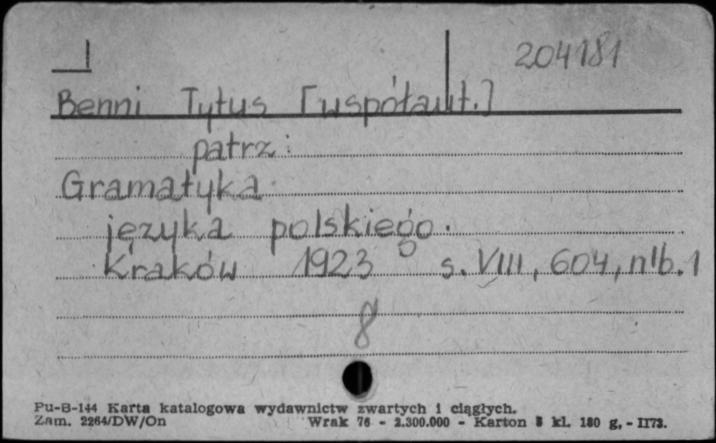 204181
Benni Tytus [współaut.]
patrz:
Gramatyka
języka polskiego.
Kraków 1923 s. VIII, 604, nlb. 1
8
Pu-B-144 Karta katalogowa wydawnictw zwartych i ciągłych.
Zam. 2264/DW/On Wrak 76 - 2.300.000 - Karton kl. 180 g. - II73.